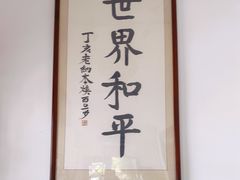 世界和平
丁亥老衲本焕百岁